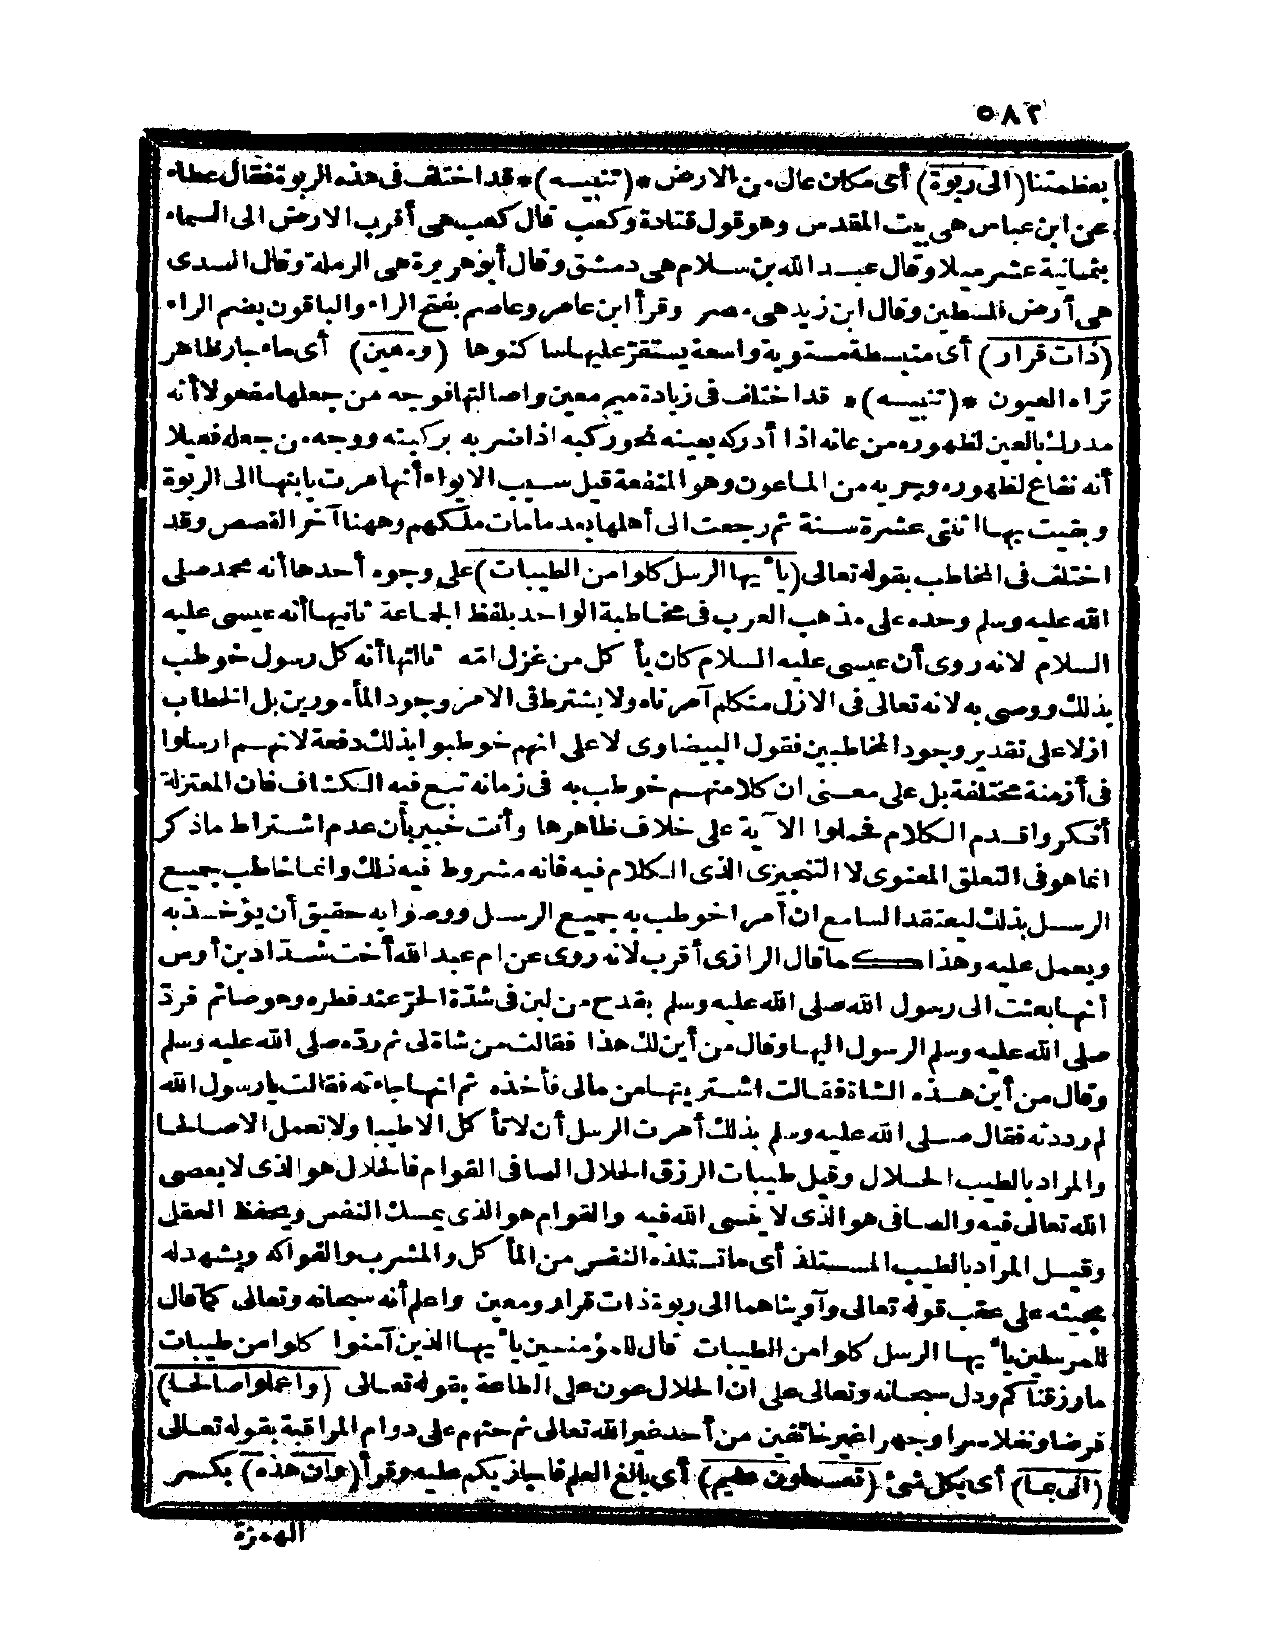 ٥٨٢
بعظمتنا (الى ربوة) أى مكان عال من الارض *(تنبيسه)* قد اختلف فى هذه الربوة فقال عطاء
عن ابن عباس هى بيت المقدس وهو قول قتادة وكعب قال كعب هى أقرب الارض الى السماء
بثمانية عشر ميلا وقال عبد الله بن سلام هى دمشق وقال أبو هريرة هى الرملة وقال السدى
هى أرض فلسطين وقال ابن زيد هى مصر وقرأ ابن عامر وعاصم بفتح الراء والباقون بضم الراء
(ذات قرار) أى منبسطة مستوية واسعة يستقر عليها ساكنوها (ومعين) أى ماء جار ظاهر
تراه العيون *(تنبيسه)* قد اختلف فى زيادة ميم معين واصالتها فوجه من جعلها مفعولا أنه
مدرك بالعين لظهوره من عانه اذا أدركه بعينه نحو ركبه اذا ضربه بركبته ووجه من جعله فعيلا
أنه نفاع لظهوره وجريه من الماعون وهو المنفعة قيل سبب الايواء أنها مرت بابنها الى الربوة
وبقيت بها اثنتى عشرة سنة ثم رجعت الى أهلها بعد ما مات ملكهم وههنا آخر القصص وقد
اختلف فى المخاطب بقوله تعالى (يا أيها الرسل كلوا من الطيبات) على وجوه أحدها أنه محمد صلى
الله عليه وسلم وحده على مذهب العرب فى مخاطبة الواحد بلفظ الجماعة ثانيها أنه عيسى عليه
السلام لانه روى أن عيسى عليه السلام كان يأكل من غزل امه ثالثها أنه كل رسول خوطب
بذلك ووصى به لانه تعالى فى الازل متكلم آمر ناه ولا يشترط فى الامر وجود المأمورين بل الخطاب
ازلا على تقدير وجود المخاطبين فقول البيضاوى لا على انهم خوطبوا بذلك دفعة لانهم ارسلوا
فى أزمنة مختلفة بل على معنى ان كلا منهم خوطب به فى زمانه تبع فيه الكشاف فان المعتزلة
أنكروا قدم الكلام فحملوا الآية على خلاف ظاهرها وأنت خبير بأن عدم اشتراط ما ذكر
انما هو فى التعلق المعنوى لا التنجيزى الذى الكلام فيه فانه مشروط فيه ذلك وانما خاطب جميع
الرسل بذلك ليعتقد السامع ان أمرا خوطب به جميع الرسل ووصوا به حقيق أن يؤخذ به
ويعمل عليه وهذا كما قال الرازى أقرب لانه روى عن ام عبد الله أخت شداد بن أوس
أنها بعثت الى رسول الله صلى الله عليه وسلم بقدح من لبن فى شدة الحر عند فطره وهو صائم فرد
صلى الله عليه وسلم الرسول اليها وقال من أين لك هذا فقالت من شاة لى ثم رده صلى الله عليه وسلم
وقال من أين هذه الشاة فقالت اشتريتها من مالى فأخذه ثم انها جاءته فقالت يا رسول الله
لم رددته فقال صلى الله عليه وسلم بذلك أمرت الرسل أن لا تأكل الا طيبا ولا تعمل الا صالحا
والمراد بالطيب الحلال وقيل طيبات الرزق الحلال الصافى القوام فالحلال هو الذى لا يعصى
الله تعالى فيه والصافى هو الذى لا ينسى الله فيه والقوام هو الذى يمسك النفس ويحفظ العقل
وقيل المراد بالطيب المستلذ أى ما تستلذه النفس من المأكل والمشرب والفواكه ويشهد له
مجيئه على عقب قوله تعالى وآويناهما الى ربوة ذات قرار ومعين واعلم أنه سبحانه وتعالى كما قال
للمرسلين يا أيها الرسل كلوا من الطيبات قال للمؤمنين يا أيها الذين آمنوا كلوا من طيبات
ما رزقناكم ودل سبحانه وتعالى على ان الحلال عون على الطاعة بقوله تعالى (واعملوا صالحا)
فرضا ونفلا سرا وجهرا غير خائفين من أحد غير الله تعالى ثم حثهم على دوام المراقبة بقوله تعالى
(انى بما) أى بكل شئ (تعملون عليم) أى بالغ العلم فأجازيكم عليه وقرأ (وان هذه) بكسر
الهمزة